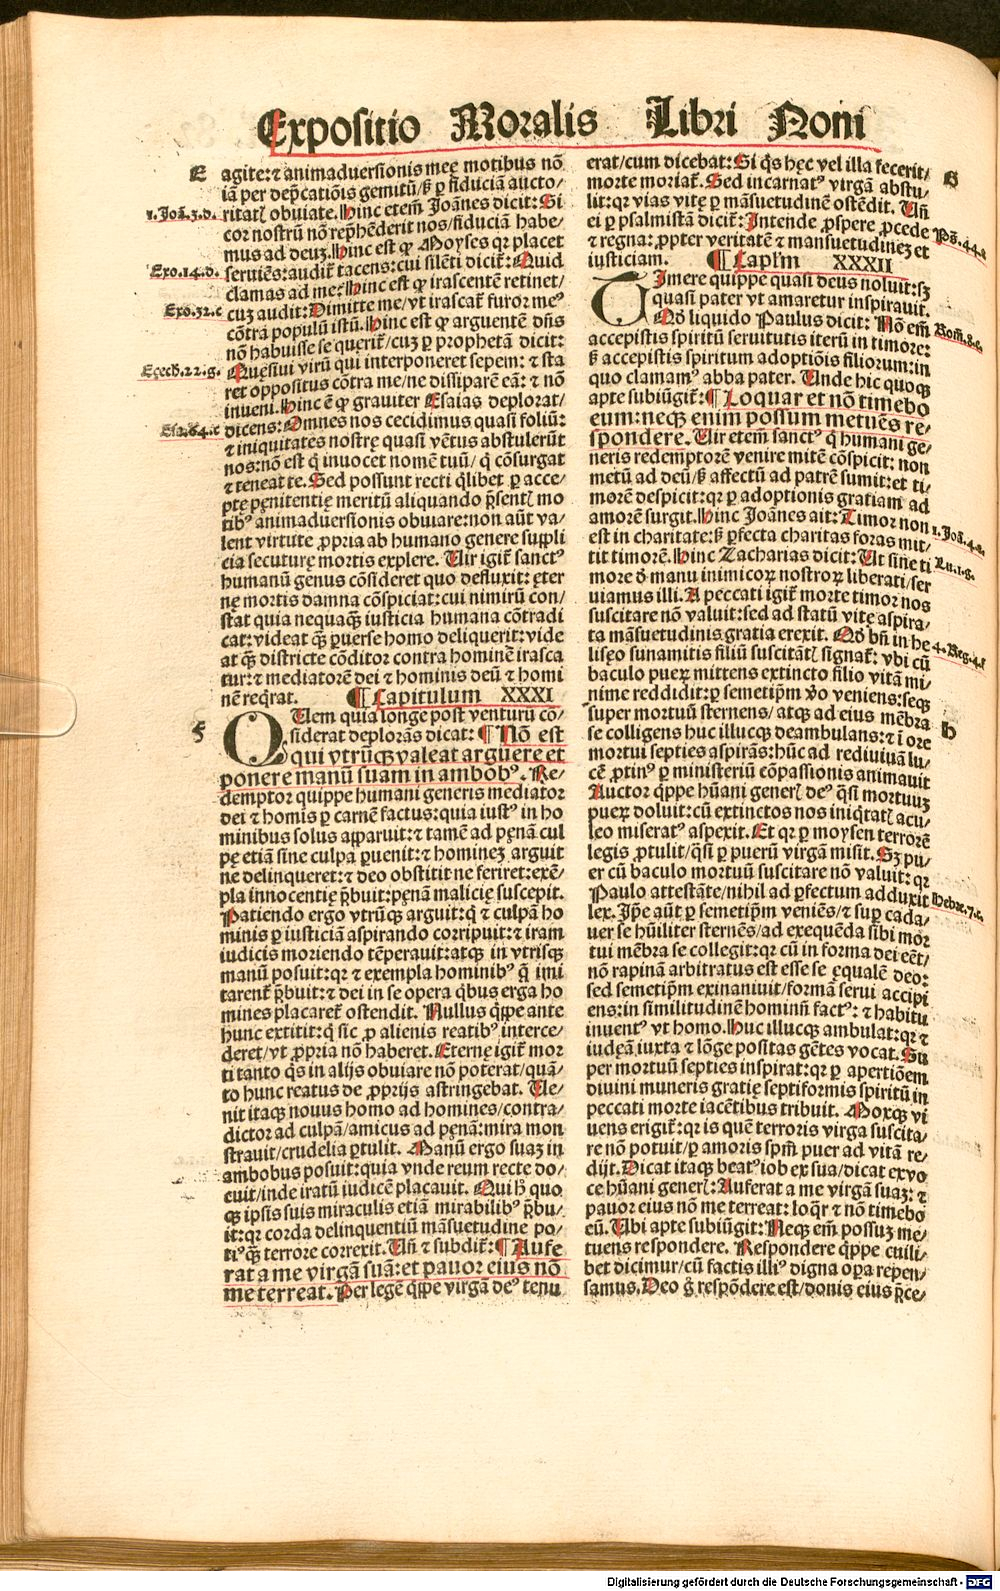 Expositio Moralis Libri Noni
E
agite: ⁊ animaduersionis meę motibus nō
iā per dep̄catiōis gemitū/ß ꝑ fiduciā aucto/
1. Joā. 3. d.
ritatꝭ obuiate. Hinc etem̄ Joānes dicit: Si
cor nostrū nō rep̄hēderit nos/fiduciā habe/
mus ad deuꝫ. Hinc est ꝙ Moyses qꝛ placet
Exo. 14. d.
seruiēs: audit̄ tacens: cui silēti dicit̄: Quid
clamas ad me? Hinc est ꝙ irascentē retinet/
Exo. 32. c
cuꝫ audit: Dimitte me/vt irascat̄ furor meꝰ
cōtra populū istū. Hinc est ꝙ arguentē dn̄s
nō habuisse se querit̄/cuꝫ ꝑ prophetā dicit:
Eçech. 22. g.
Quęsiui virū qui interponeret sepem: ⁊ sta
ret oppositus cōtra me/ne dissiparē eā: ⁊ nō
inueni. Hinc ē ꝙ grauiter Esaias deplorat/
Esa. 64. c
dicens: Omnes nos cecidimus quasi foliū:
⁊ iniquitates nostrę quasi vētus abstulerūt
nos: nō est q̇ inuocet nomē tuū/ q̇ cōsurgat
⁊ teneat te. Sed possunt recti q̇libet ꝑ acce/
ptę pęnitentię meritū aliquando p̄sentꝭ mo
tibꝰ animaduersionis obuiare: non aūt va/
lent virtute ꝓpria ab humano genere suppli
cia secuturę mortis explere. Uir igit̄ sanctꝰ
humanū genus cōsideret quo defluxit: ęter
nę mortis damna cōspiciat: cui nimirū con/
stat quia nequaqȝ iusticia humana cōtradi
cat: videat qȝ ꝑuerse homo deliquerit: vide
at qȝ districte cōditor contra hominē irasca
tur: ⁊ mediatorē dei ⁊ hominis deū ⁊ homi
nē req̇rat. ¶ Capitulum XXXI
F
QUem quia longe post venturū cō/
siderat deplorās dicat: ¶ Nō est
qui vtrūqȝ valeat arguere et
ponere manū suam in ambobꝰ. Re/
demptor quippe humani generis mediator
dei ⁊ homis ꝑ carnē factus: quia iustꝰ in ho
minibus solus apparuit: ⁊ tamē ad pęnā cul
pę etiā sine culpa ꝑuenit: ⁊ homineȝ arguit
ne delinqueret: ⁊ deo obstitit ne feriret: exē/
pla innocentię p̄buit: pęnā malicię suscepit.
Patiendo ergo vtrūqȝ arguit: q̇ ⁊ culpā ho
minis ꝑ iusticiā aspirando corripuit: ⁊ iram
iudicis moriendo tēperauit: atqȝ in vtrisqȝ
manū posuit: qꝛ ⁊ exempla hominibꝰ q̄ imi
tarent̄ p̄buit: ⁊ dei in se opera q̇bus erga ho
mines placaret̄ ostendit. Nullus q̇ppe ante
hunc extitit: q̇ sic ꝓ alienis reatibꝰ interce/
deret/vt ꝓpria nō haberet. Eternę igit̄ mor
ti tanto q̇s in alijs obuiare nō poterat/quā/
to hunc reatus de ꝓprijs astringebat. Ue/
nit itaqȝ nouus homo ad homines/contra/
dictor ad culpā/amicus ad pęnā: mira mon
strauit/crudelia ꝑtulit. Manū ergo suaȝ in
ambobus posuit: quia vnde reum recte do/
cuit/inde iratū iudicē placauit. Qui h̄ quo
qȝ ipsis suis miraculis etiā mirabiliꝰ p̄bu/
it: qꝛ corda delinquentiū māsuetudine po/
tiꝰqȝ terrore correxit. Un̄ ⁊ subdit̄: ¶ Aufe
rat a me virgā suā: et pauor eius nō
me terreat. Per legē q̇ppe virgā deꝰ tenu
erat/cum dicebat: Si q̇s hęc vel illa fecerit/
G
morte moriat̄. Sed incarnatꝰ virgā abstu/
lit: qꝛ vias vitę ꝑ māsuetudinē ostēdit. Un̄
ei ꝑ psalmistā dicit̄: Intende ꝓspere ꝓcede
Pō. 44. a
⁊ regna: ꝓpter veritatē ⁊ mansuetudineȝ et
iusticiam. ¶ Caplm̄ XXXII
TImere quippe quasi deus noluit: sȝ
quasi pater vt amaretur inspirauit.
Qō liquido Paulus dicit: Nō em̄
Rom̄. 8. c.
accepistis spiritū seruitutis iterū in timore:
ß accepistis spiritum adoptiōis filiorum: in
quo clamamꝰ abba pater. Unde hic quoqȝ
apte subiūgit̄: ¶ Loquar et nō timebo
eum: neqȝ enim possum metuēs re/
spondere. Uir etem̄ sanctꝰ q̇ humani ge/
neris redemptorē venire mitē cōspicit: non
metū ad deū/ß affectū ad patrē sumit: et ti/
morē despicit: qꝛ ꝑ adoptionis gratiam ad
amorē surgit. Hinc Joānes ait: Timor non
1. Joā. 4. d.
est in charitate: ß ꝑfecta charitas foras mit/
tit timorē. Hinc Zacharias dicit: Ut sine ti
Lu. 1. g.
more d̄ manu inimicoꝝ nostroꝝ liberati/ser
uiamus illi. A peccati igit̄ morte timor nos
suscitare nō valuit: sed ad statū vitę aspira/
ta māsuetudinis gratia erexit. Qō bn̄ in he
4. Reg. 4. f
lisęo sunamitis filiū suscitātꝭ signat̄: vbi cū
baculo puerꝝ mittens extincto filio vitā mi/
nime reddidit: ꝑ semetip̄m ꝟo veniens: seqȝ
super mortuū sternens/ atqȝ ad eius mēbra
H
se colligens huc illucqȝ deambulans: ⁊ ī ore
mortui septies aspirās: hūc ad rediuiuā lu/
cē ꝓtinꝰ ꝑ ministeriū cōpassionis animauit
Auctor q̇ppe hūani generꝭ deꝰ q̇si mortuuȝ
puerꝝ doluit: cū extinctos nos iniq̇tatꝭ acu/
leo miseratꝰ aspexit. Et qꝛ ꝑ moysen terrorē
legis ꝓtulit/q̇si ꝑ puerū virgā misit. Sȝ pu/
er cū baculo mortuū suscitare nō valuit: qꝛ
Paulo attestāte/nihil ad ꝑfectum adduxit
Hebre. 7. c.
lex. Ip̄e aūt ꝑ semetip̄m veniēs/⁊ suꝑ cada/
uer se hūiliter sternēs/ad exequēda sibi mor
tui mēbra se collegit: qꝛ cū in forma dei eēt/
nō rapinā arbitratus est esse se ęqualē deo:
sed semetip̄m exinaniuit/formā serui accipi
ens: in similitudinē hominū factꝰ: ⁊ habitu
inuentꝰ vt homo. Huc illucqȝ ambulat: qꝛ ⁊
iudęā iuxta ⁊ lōge positas gētes vocat. Su
per mortuū septies inspirat: qꝛ ꝑ apertiōem
diuini muneris gratię septiformis spiritū in
peccati morte iacētibus tribuit. Moxqȝ vi
uens erigit̄: qꝛ is quē terroris virga suscita/
re nō potuit/ꝑ amoris spm̄ puer ad vitā re/
dijt. Dicat itaqȝ beatꝰ iob ex sua/dicat ex vo
ce hūani generꝭ: Auferat a me virgā suaȝ: ⁊
pauor eius nō me terreat: loq̇r ⁊ nō timebo
eū. Ubi apte subiūgit: Neqȝ em̄ possuȝ me/
tuens respondere. Respondere q̇ppe cuili/
bet dicimur/cū factis illiꝰ digna oꝑa repen/
samus. Deo ḡ respōdere est/donis eius p̄ce/
Digitalisierung gefördert durch die Deutsche Forschungsgemeinschaft - DFG